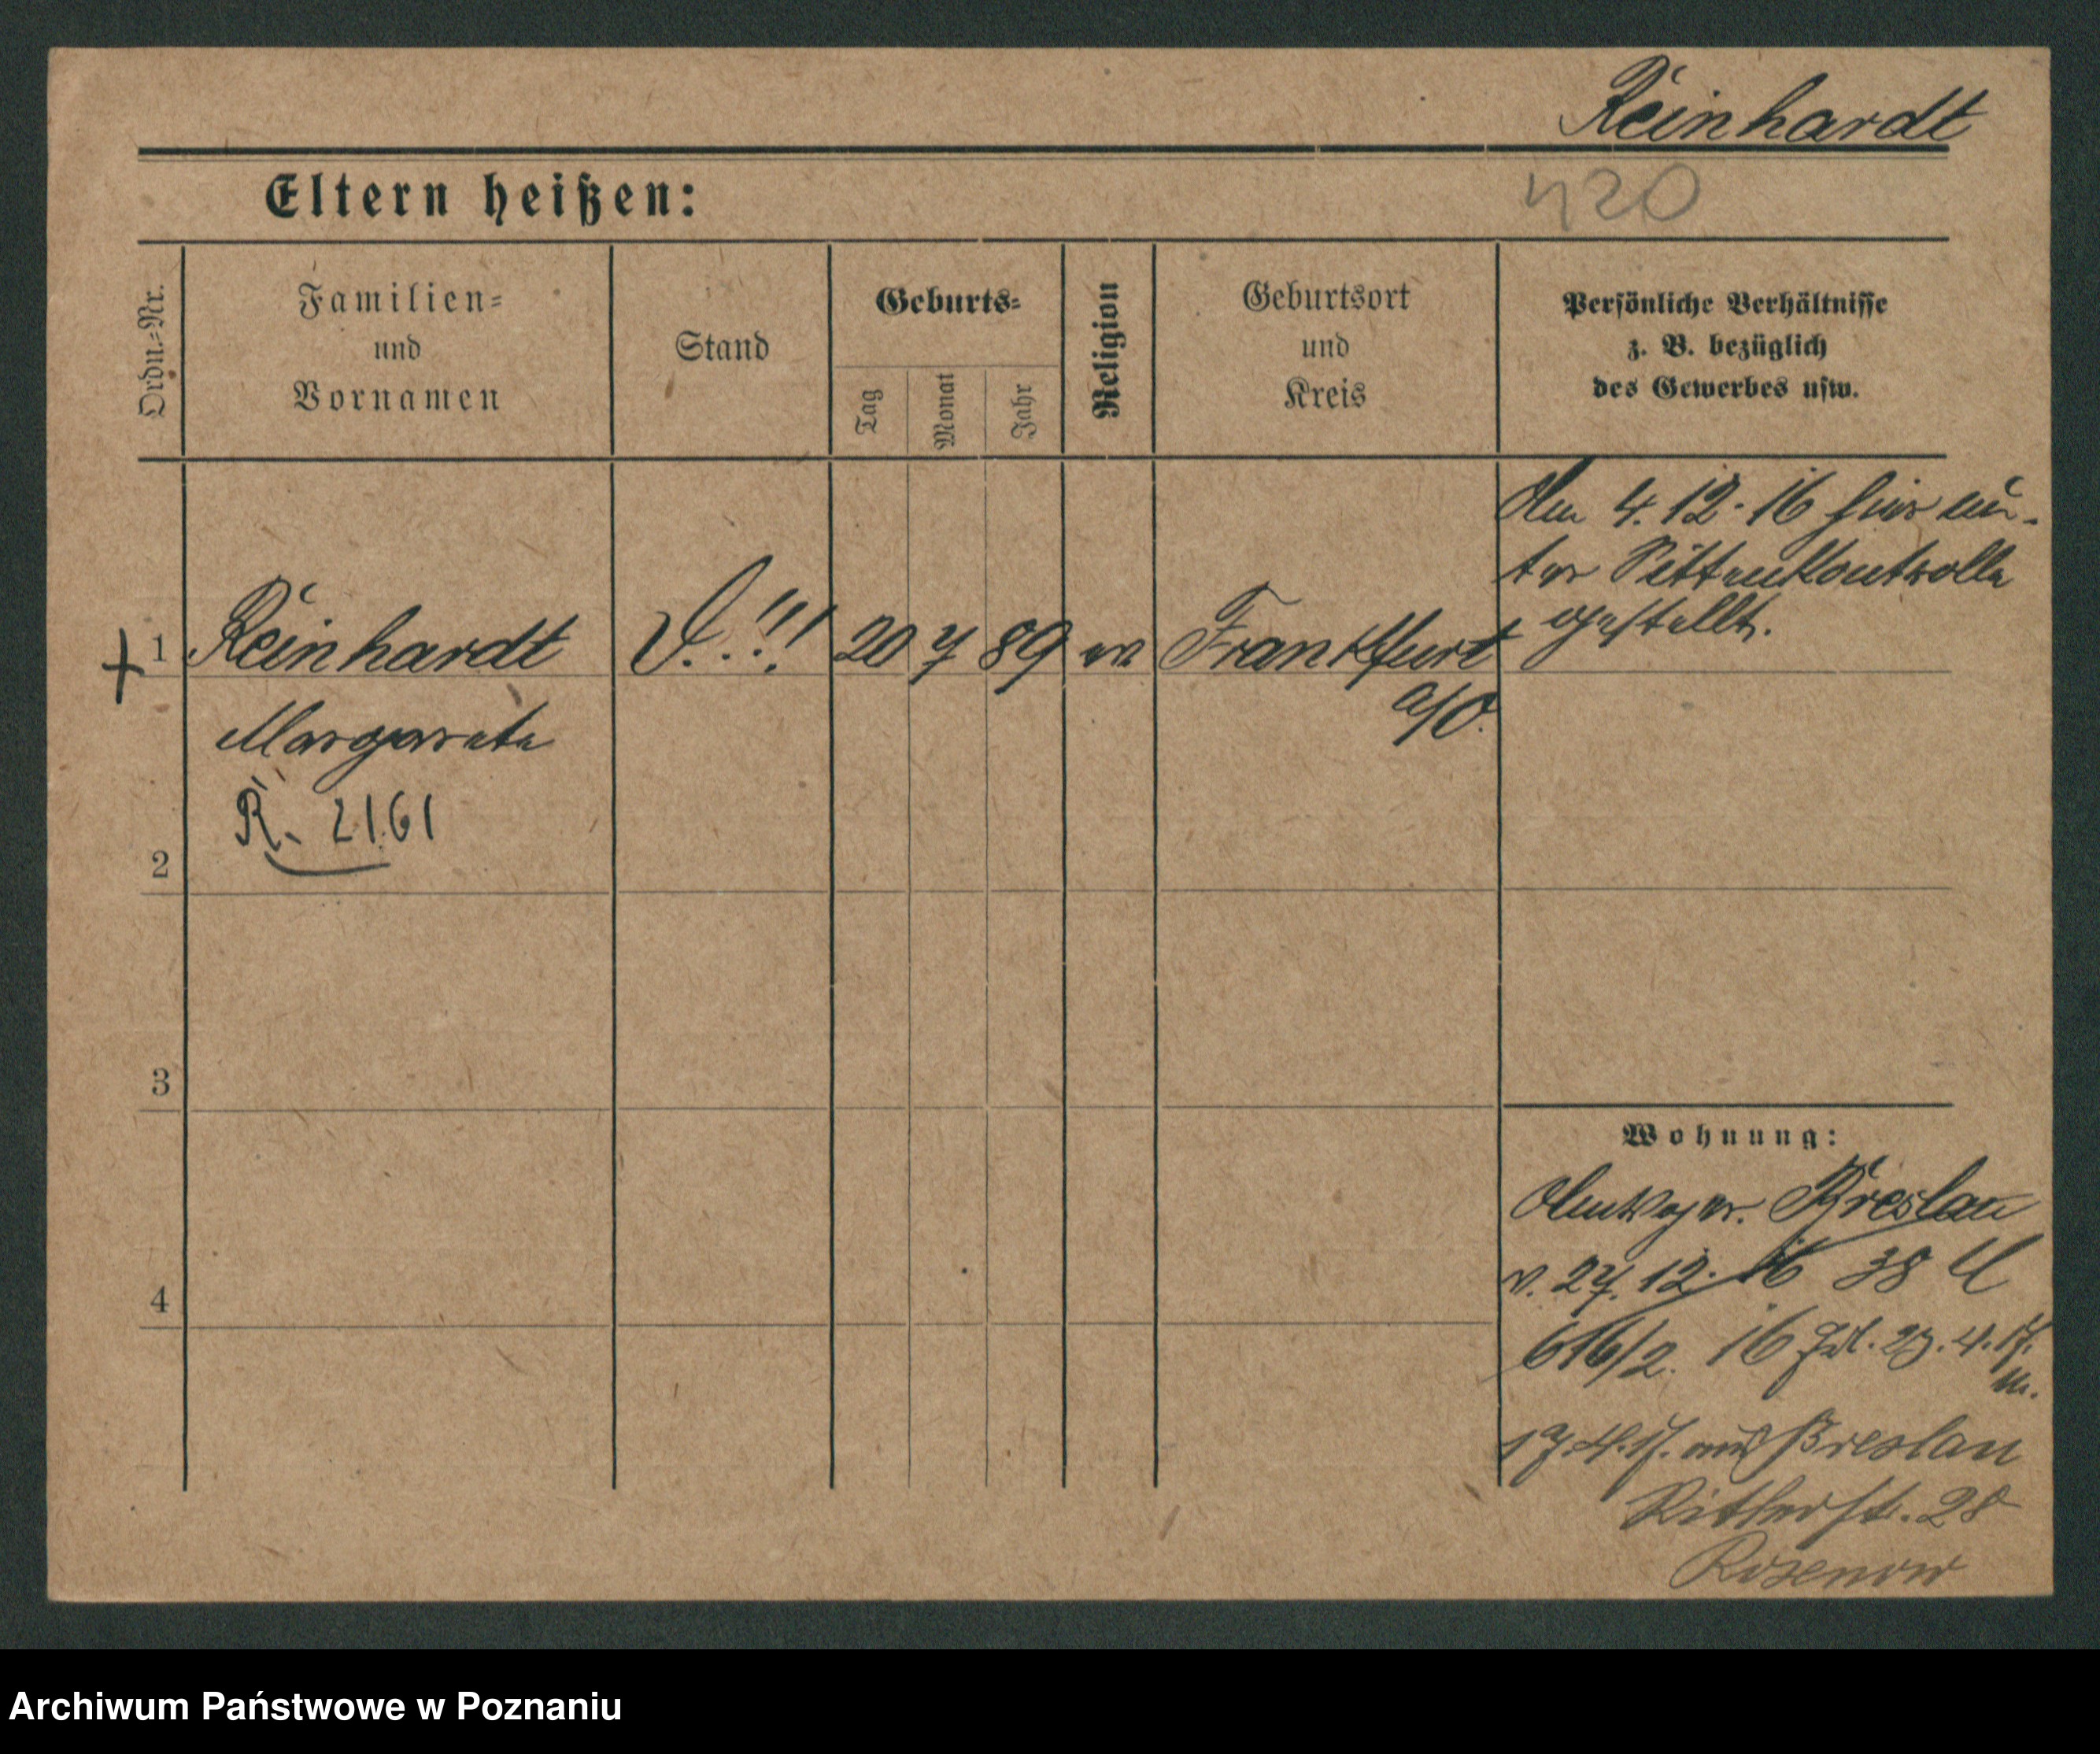 Reinhardt
Eltern heißen:
420
Ordn.-Nr.
Familien-
und
Vornamen
Stand
Geburts-
Tag
Monat
Jahr
Religion
Geburtsort
und
Kreis
Persönliche Verhältnisse
z. B. bezüglich
des Gewerbes usw.
Am 4.12.16 hier un-
ter Sittenkontrolle
gestellt.
+ 1 Reinhardt !!! 20 7 89 Frankfurt
a/O.
Margarete
R. 2161
2
3
4
Wohnung:
Breslau
v. 27.12.16 38
616/2. 16
17.4.17. aus Breslau
Ritterst. 28
Rosenow
Archiwum Państwowe w Poznaniu